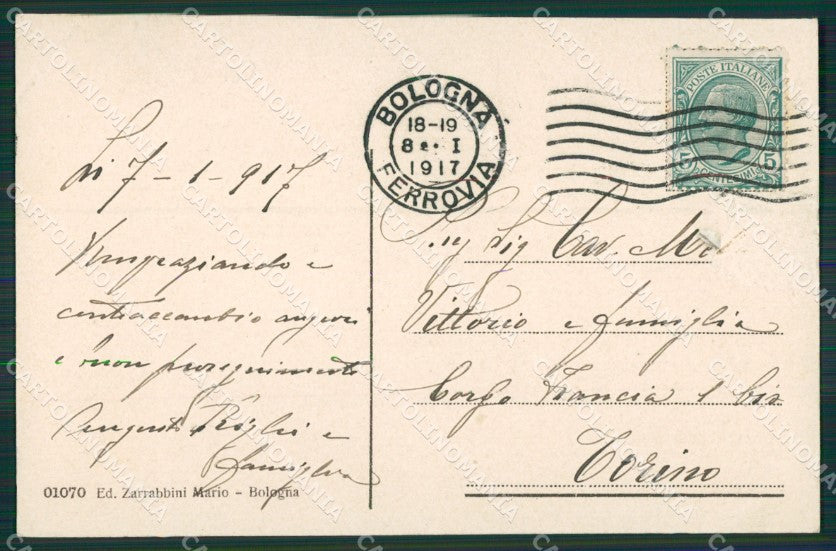 BOLOGNA
18-19
8 I
1917
FERROVIA
POSTE ITALIANE
5 5
CENTESIMI
Li 7-1-917
Ringraziando e
contraccambio auguri
e buon proseguimento
Augusto Righi e
famiglia
Sig Cav.
Vittorio e famiglia
Corso Francia 1 bis
Torino
01070 Ed. Zarrabbini Mario - Bologna
CARTOLINOMANIA